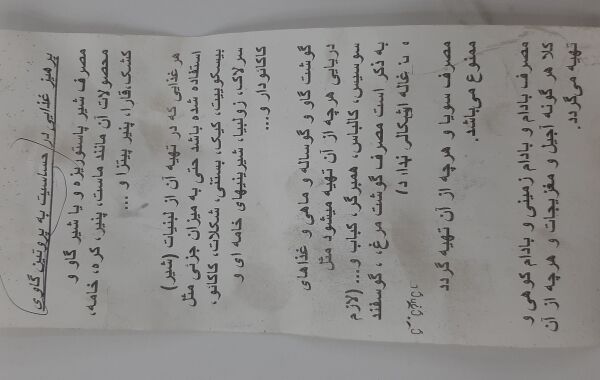 پرهیز غذایی در حساسیت به پروتئین گاوی
مصرف شیر پاستوریزه و یا شیر گاو و
محصولات آن مانند ماست، پنیر، کره، خامه،
کشک، قارا، پنیر پیتزا و ...
هر غذایی که در تهیه آن از لبنیات (شیر)
استفاده شده باشد حتی به میزان جزئی مثل
بیسکوییت، کیک، بستنی، شکلات، کاکائو،
سرلاک، زولبیا، شیرینیهای خامه ای و
کاکائودار و...
گوشت گاو و گوساله و ماهی و غذاهای
دریایی هرچه از آن تهیه میشود مثل
سوسیس، کالباس، همبرگر، کباب و... (لازم
به ذکر است مصرف گوشت مرغ، گوسفند
و بزغاله اشکالی ندارد)
مصرف سویا و هرچه از آن تهیه گردد
ممنوع می‌باشد.
مصرف بادام و بادام زمینی و بادام کوهی و
کلا هر گونه آجیل و مغزیجات و هرچه از آن
تهیه می‌گردد.